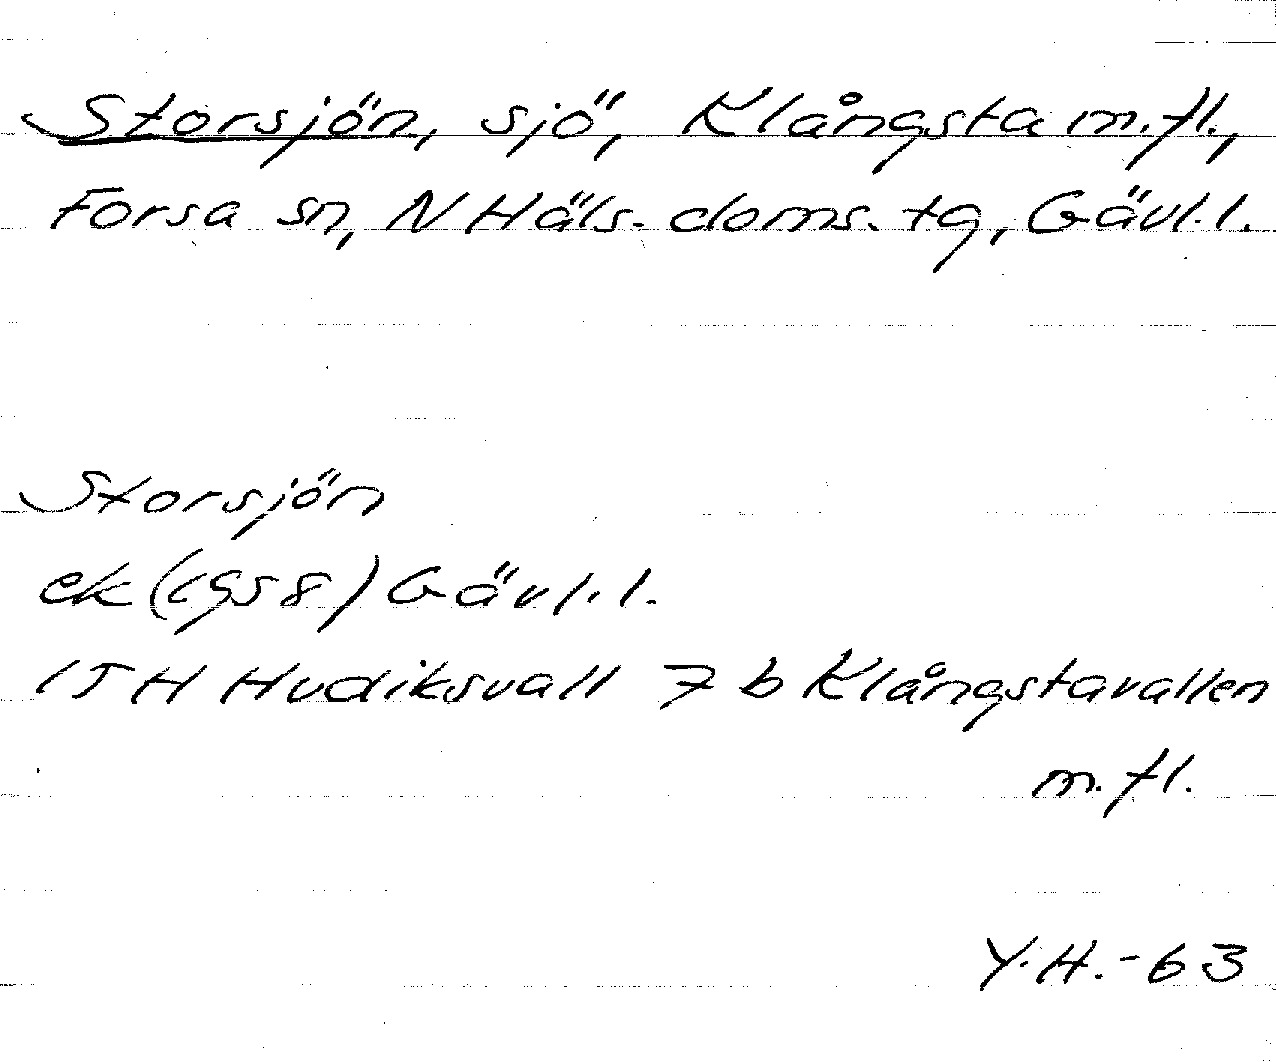 Storsjön, sjö, Klångsta m.fl.,
Forsa sn, N Häls. doms. tg, Gävl.l.
Storsjön
ek (1958) Gävl.l.
15H Hudiksvall 7 b Klångstavallen
m.fl.
Y.H.-63